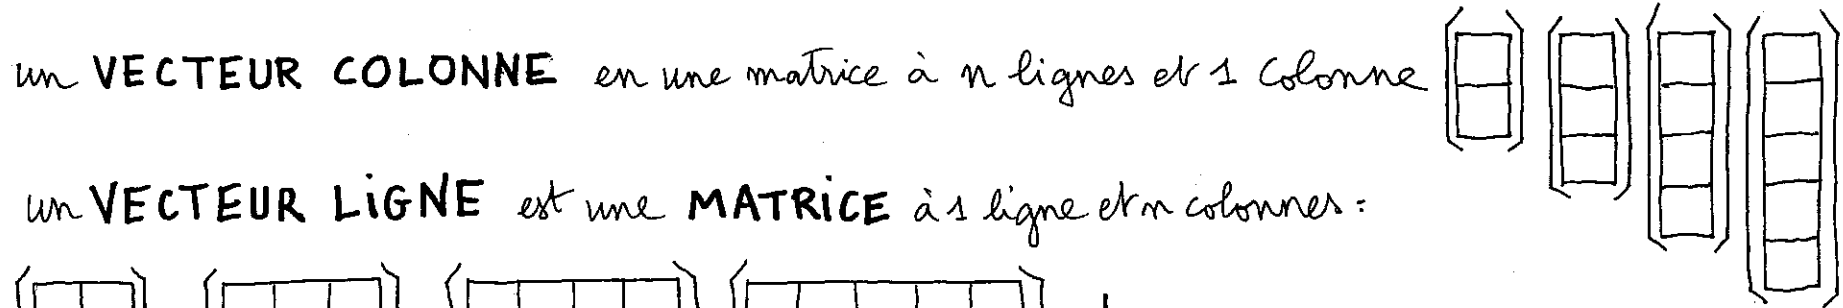 un VECTEUR COLONNE en une matrice à n lignes et 1 colonne
un VECTEUR LiGNE est une MATRiCE à 1 ligne et n colonnes :